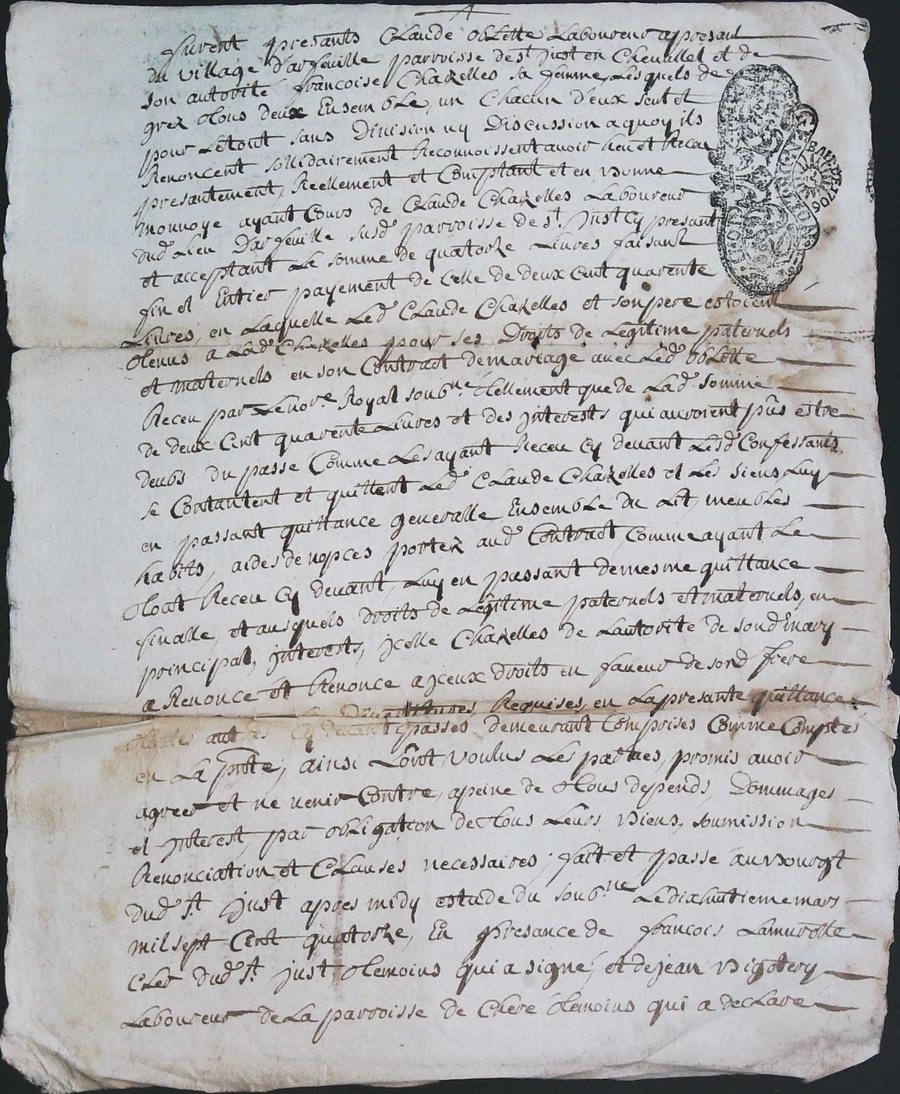 furent presants Claude oblette Laboureur apresant
du village d'arfeuille parroisse de st Just en Chevallet et de
son autorité francoise Chazelles sa femme Lesquels de
grez tous deux Ensemble, un Chacun d'eux seul et
pour Letout sans Division ny Discussion a quoy ils
Renoncent sollidairement Reconnoissent avoir heu et Receu
presantement, Reellement et Comptant et en bonne
monnoye ayant Cours de Claude Chazelles Laboureur
dud. Lieu Darfeuille susd. parroisse de st. Just Cy presant
et acceptant Le somme de quatorze Livres faisant
fin et Entier payement de Celle de deux Cent quarente
Livres, en Laquelle Led. Claude Chazelles et son pere estoient
tenus a Lad. Chazelles pour ses Droits de Legitime paternels
et maternels en son Contract de mariage avec Led. oblette
Receu par Lenore. Royal soubne. tellement que de Lad. somme
de deux Cent quarente Livres et des Interests qui auroient pus estre
deubs du passe Comme Les ayant Receu Cy devant Lesd. Confessants
se Contantent et quittent Led. Claude Chazelles et Les siens Luy
en passant quittance generalle, Ensemble du Lit, meubles
habits, aides de nopces portez aud. Contract, Comme ayant Le
tout Receu Cy devant, Luy en passant de mesme quittance
finalle, et ausquels droits de Legitime paternels et maternels, en
principal, Interests, jcelle Chazelles de Lautorite de sond. mary
a Renoncé et Renonce a jceux droits en faveur de sond. frere
Requises, en La presante quittance
toutes autres Cy devant passés demeurant Comprises Comme Comptes
en La pnte, ainsi Lont voulus Les parties, promis avoir
agreer et ne venir Contre, apeine de tous depends, Dommages
et Interest par obligation de tous Leurs Biens, soumission
Renonciation et Clauses necessaires; fait et passé au Bourgt
dud. st. Just apres midy estude du soubne. Le dixhuitieme mars
mil sept Cent quatorze, En presance de françois Lamurette
Clerc dud. st. Just temoins qui a signe, et de jean Bigotery
Laboureur de La parroisse de Chere temoins qui a declaré